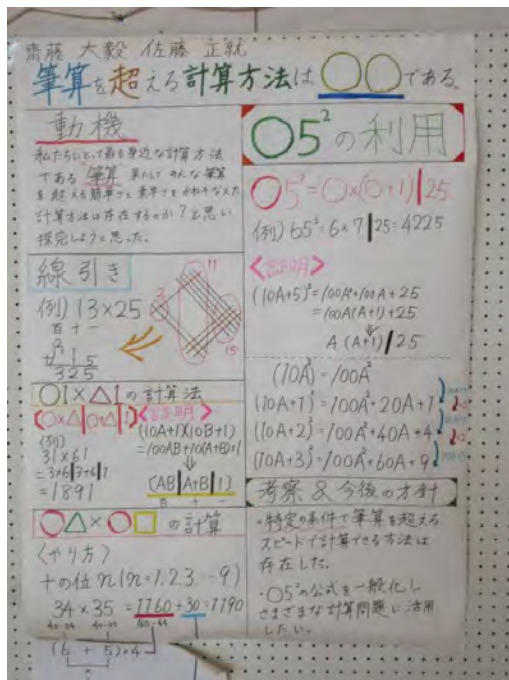 齋藤 大毅 佐藤 正就
筆算を超える計算方法は〇〇である。
動機
私たちにとって最も身近な計算方法
である筆算 果たして そんな筆算
を超える簡単さと素早さをかねそなえた
計算方法は存在するのか?と思い
探究しようと思った。
線引き
例) 13×25
百十一
2
11 5
325
3
11
15
〇1×△1の計算法
(〇×△|〇+△|1)
<証明>
(例)
31×61
=3×6|3+6|1
=1891
(10A+1)(10B+1)
=100AB+10(A+B)+1
⇓
(AB|A+B|1)
百 十 一
〇△×〇□の計算
〈やり方〉
十の位n(n=1.2.3.…9)
34×35=1160+30=1190
(6 + 5)×4
〇5²の利用
〇5²=〇×(〇+1)|25
例) 65²=6×7|25=4225
<証明>
(10A+5)²=100A²+100A+25
=100A(A+1)+25
⇓
A(A+1)|25
(10A)²=100A²
(10A+1)²=100A²+20A+1
(10A+2)²=100A²+40A+4
(10A+3)²=100A²+60A+9
考察&今後の方針
・特定の条件で筆算を超える
スピードで計算できる方法は
存在した。
・〇5²の公式を一般化し
さまざまな計算問題に活用
したい。